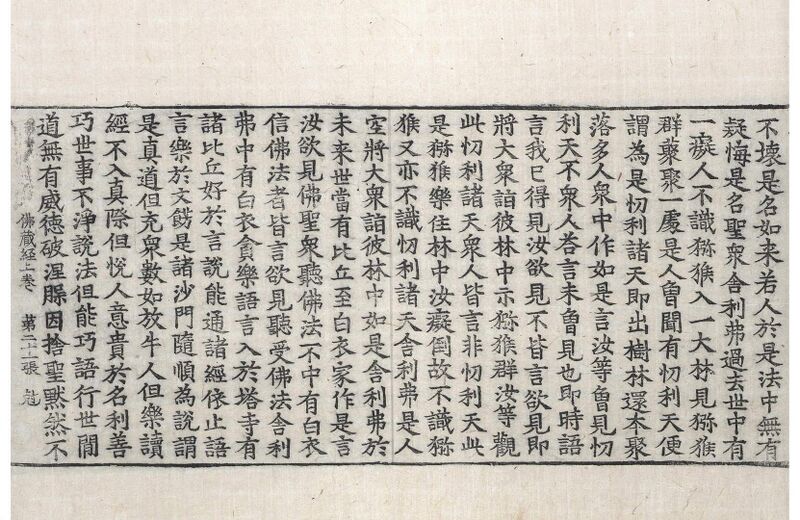 不壞是名如来若人於是法中無有
疑悔是名聖衆舍利弗過去世中有
一癡人不識獼猴入一大林見獼猴
群藂聚一處是人曾聞有忉利天便
謂為是忉利諸天即出樹林還本聚
落多人衆中作如是言汝等曾見忉
利天不衆人荅言未曾見也即時語
言我已得見汝欲見不皆言欲見即
將大衆詣彼林中示獼猴群汝等觀
此忉利諸天衆人皆言非忉利天此
是獼猴樂住林中汝癡倒故不識獼
猴又亦不識忉利諸天舍利弗是人
空將大衆詣彼林中如是舍利弗於
未来世當有比丘至白衣家作是言
汝欲見佛聖衆聽佛法不中有白衣
信佛法者皆言欲見聽受佛法舍利
弗中有白衣貪樂語言入於塔寺有
諸比丘好於言說能通諸經依止語
言樂於文飾是諸沙門隨順為說謂
是真道但充衆數如放牛人但樂讀
經不入真際但恱人意貴於名利善
巧世事不淨說法但能巧語行世間
道無有威德破涅槃因捨聖默然不
佛藏經上卷 苐二十張